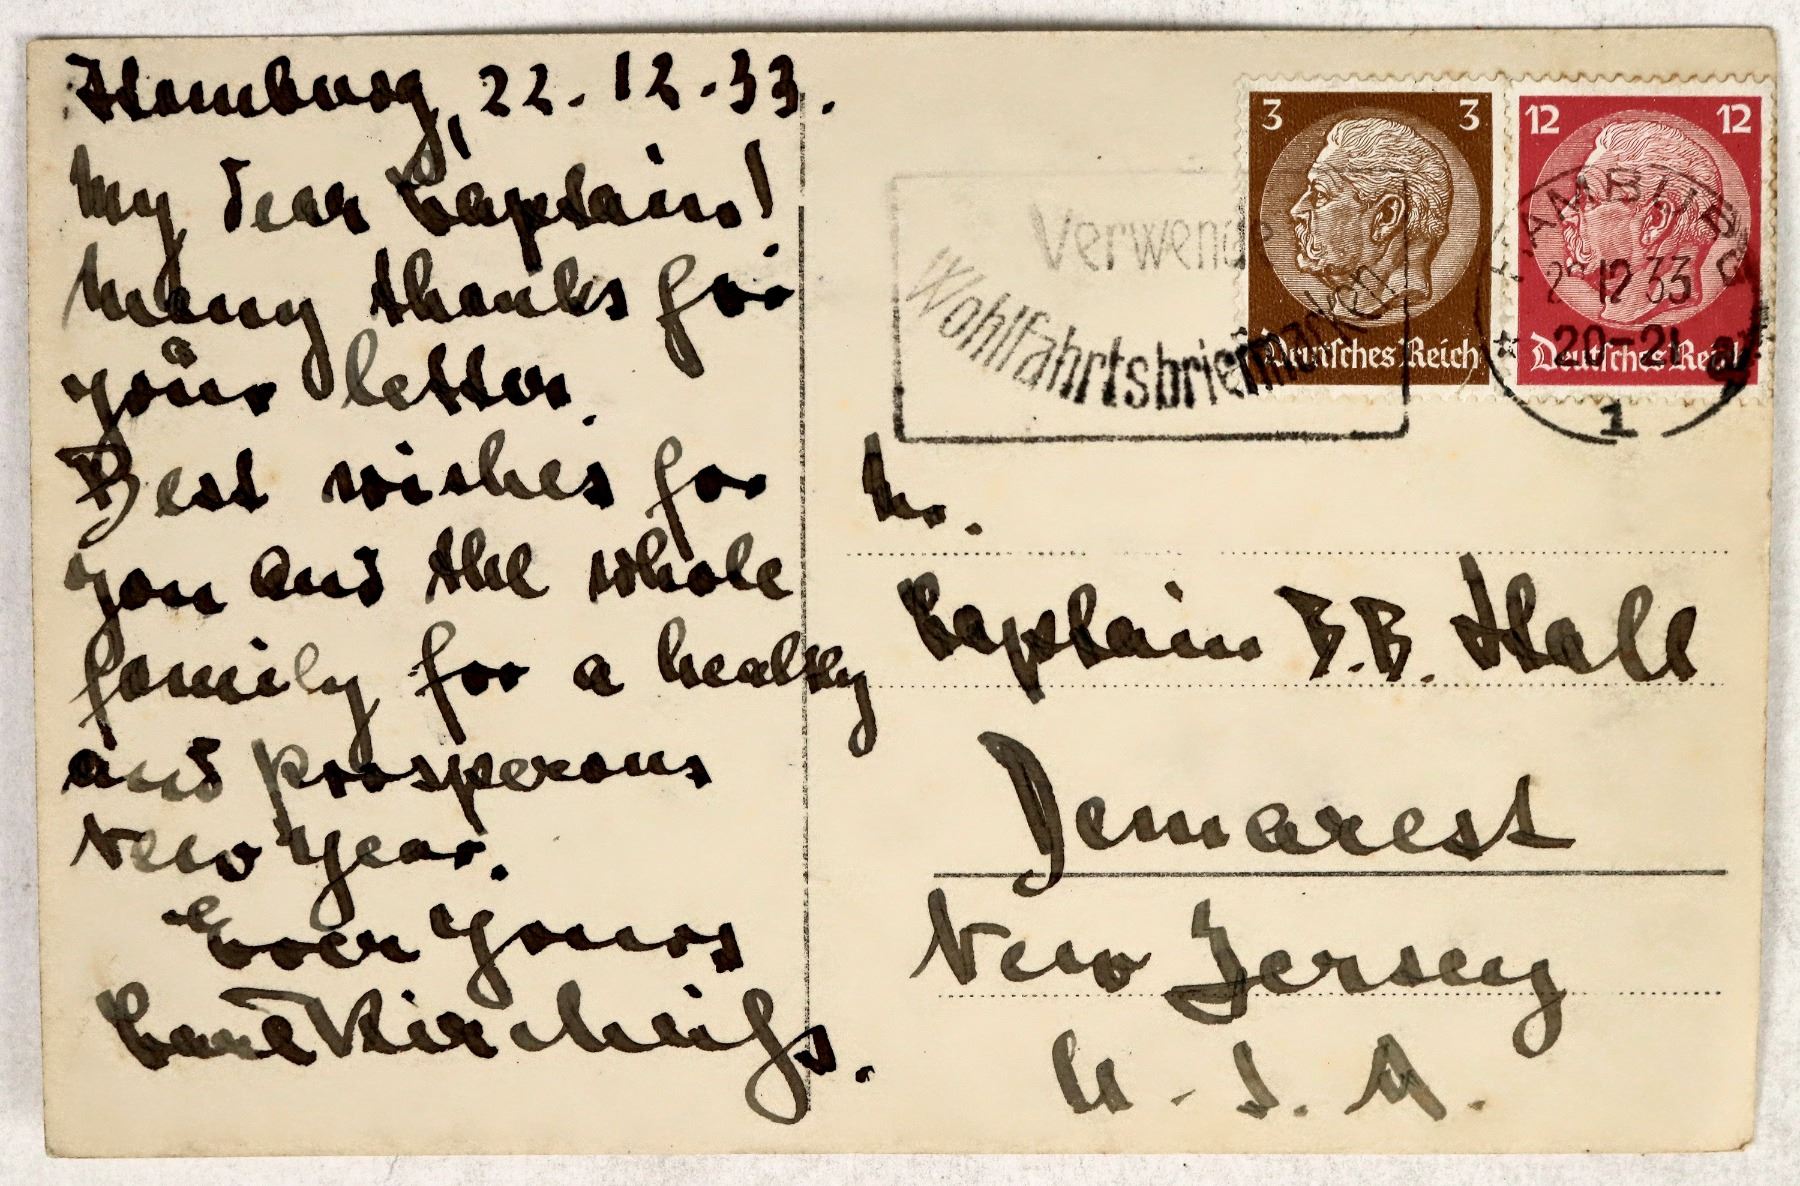 Hamburg, 22.12.33.
My dear Captain!
Many thanks for
your letter.
Best wishes for
you and the whole
family for a healthy
and prosperous
New Year.
Ever Yours
Carl Kircheiß.
3 3
Deutsches Reich
12 12
Deutsches Reich
Verwend
Wohlfahrtsbriefmarken
HAMBURG
22.12.33
20-21
* 1
Mr.
Captain B.B. Hall
Demarest
New Jersey
U.S.A.